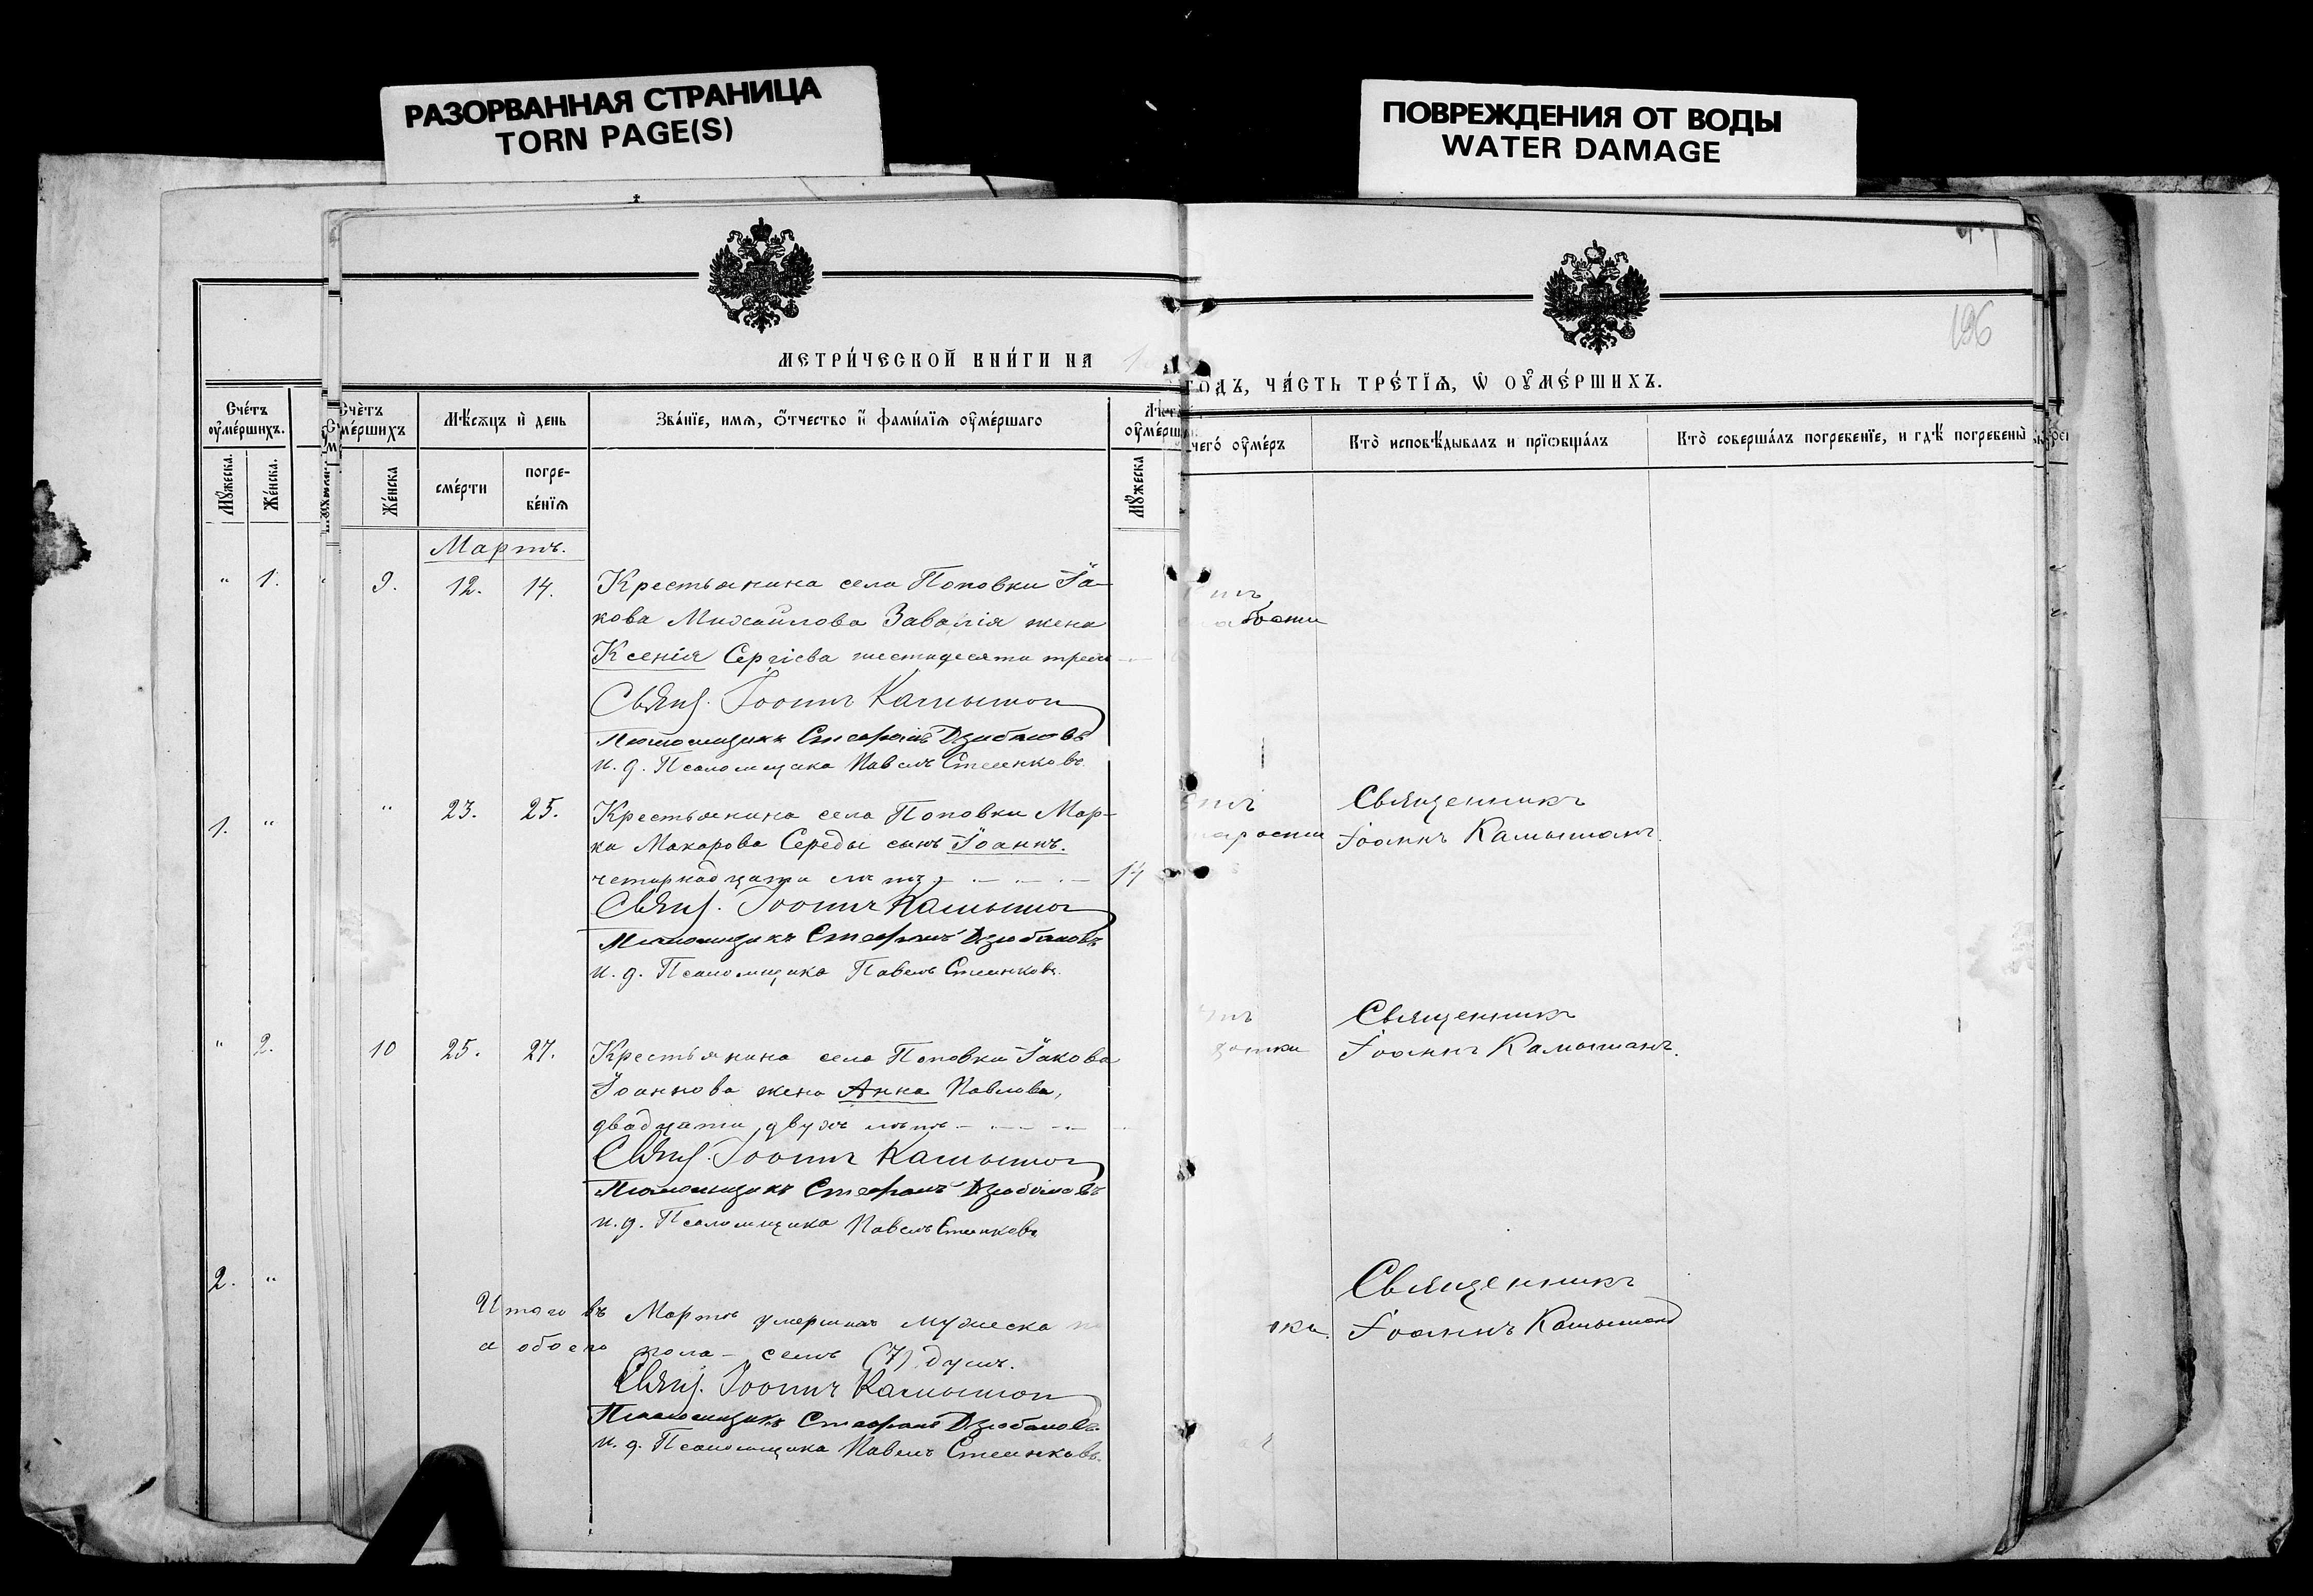 РАЗОРВАННАЯ СТРАНИЦА
TORN PAGE(S)
ПОВРЕЖДЕНИЯ ОТ ВОДЫ
WATER DAMAGE
196
МЕТРИ́ЧЕСКОЙ КНИ́ГИ НА
ГОДЪ, ЧА́СТЬ ТРЕ́ТЇѦ, Ѡ҆ ОУ҆МЕ́РШИХЪ.
Сче́тъ
оу҆ме́ршихъ.
Мꙋ́жеска.
Же́нска.
Сче́тъ
ме́ршихъ
Же́нска
Мѣ́сѧцъ и҆ де́нь
сме́рти
погре-
бе́нїѧ
Зва́нїе, имѧ, ѻ҆́тчество и҆ фами́лїѧ оу҆ме́ршаго
Мꙋ́жеска
чегѡ̀ оу҆ме́ръ
Кто̀ исповѣ́дывалъ и прїѡбща́лъ
Кто̀ соверша́лъ погребе́нїе, и гдѣ̀ погребены̀
Мартъ.
" 1.
9. 12. 14. Крестьянина села Поповки Іа-
кова Михайлова Завалія жена
Ксенія Сергіева шестидесяти трехъ
Свящ. Іоаннъ Камышан
Псаломщикъ Стефанъ Дзюбановъ
и. д. Псаломщика Павелъ Стеенковъ.
1. "
" 23. 25. Крестьянина села Поповки Мар-
ка Макарова Середы сынъ Іоаннъ.
четырнадцати лѣтъ 14
Свящ. Іоаннъ Камышан
Псаломщикъ Стефанъ Дзюбановъ
и. д. Псаломщика Павелъ Стеенковъ.
" 2.
10 25. 27. Крестьянина села Поповки Іакова
Іоаннова жена Анна Павлова,
двадцати двухъ лѣтъ
Свящ. Іоаннъ Камышан
Псаломщикъ Стефанъ Дзюбановъ
и. д. Псаломщика Павелъ Стеенковъ
2. "
Итого въ Мартѣ умершихъ мужеска
а обоего пола - семь (7) душъ.
Свящ. Іоаннъ Камышан
Псаломщикъ Стефанъ Дзюбановъ
и. д. Псаломщика Павелъ Стеенковъ.
Священникъ
Іоаннъ Камышанъ.
Священникъ
Іоаннъ Камышанъ.
Священникъ
Іоаннъ Камышанъ